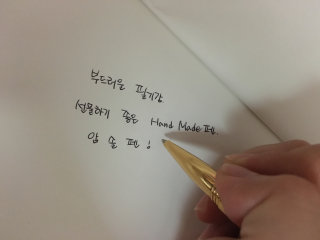 부드러운 필기감.
선물하기 좋은 Hand Made 펜.
암 솔 펜!